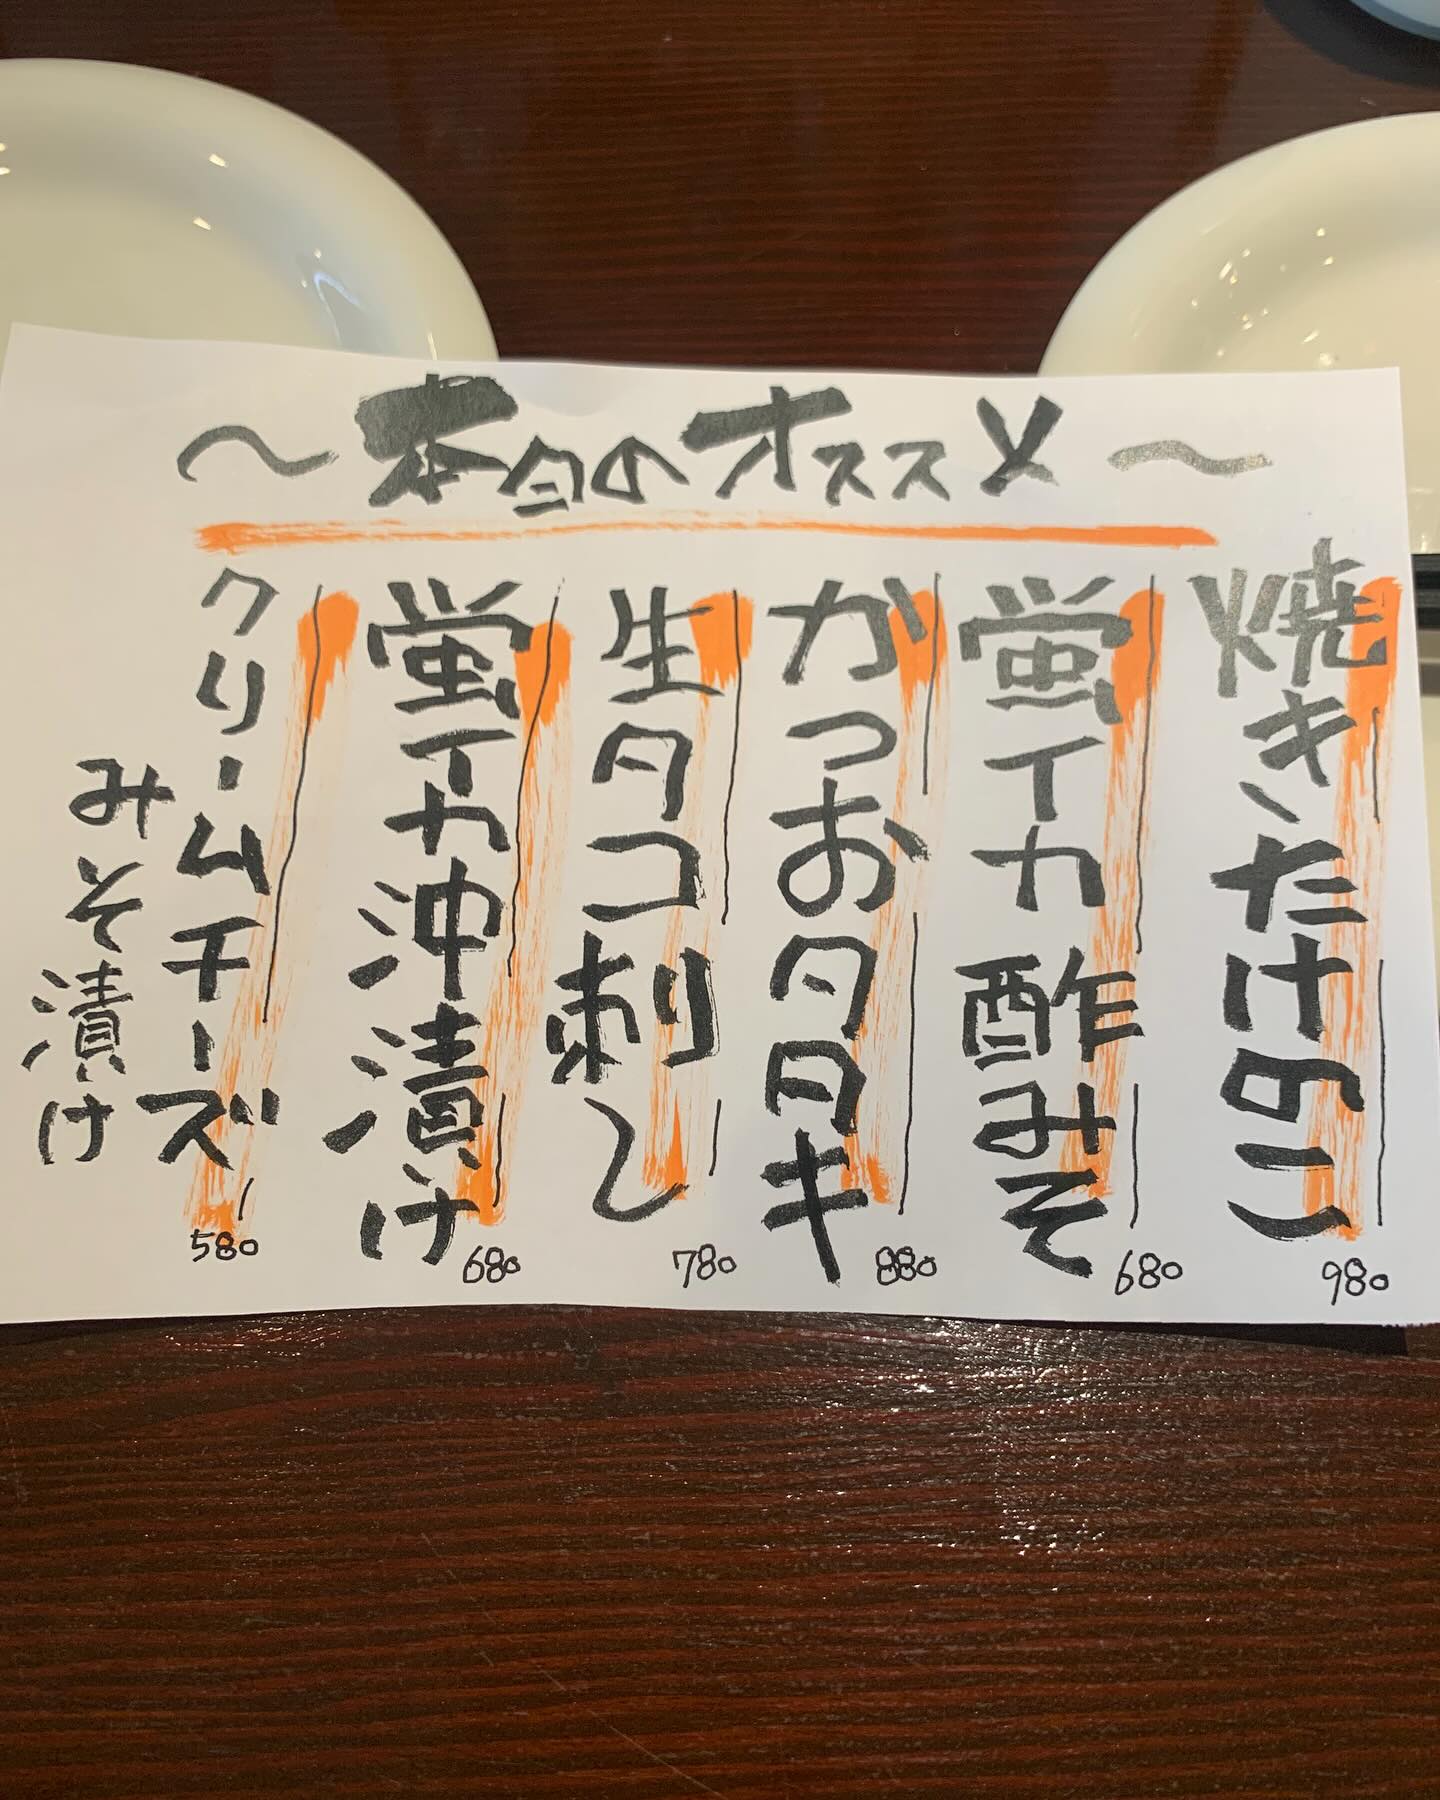 〜本日のオススメ〜
焼きたけのこ
980
蛍イカ酢みそ
680
かつおタタキ
880
生タコ刺し
780
蛍イカ沖漬け
680
クリームチーズ
みそ漬け
580